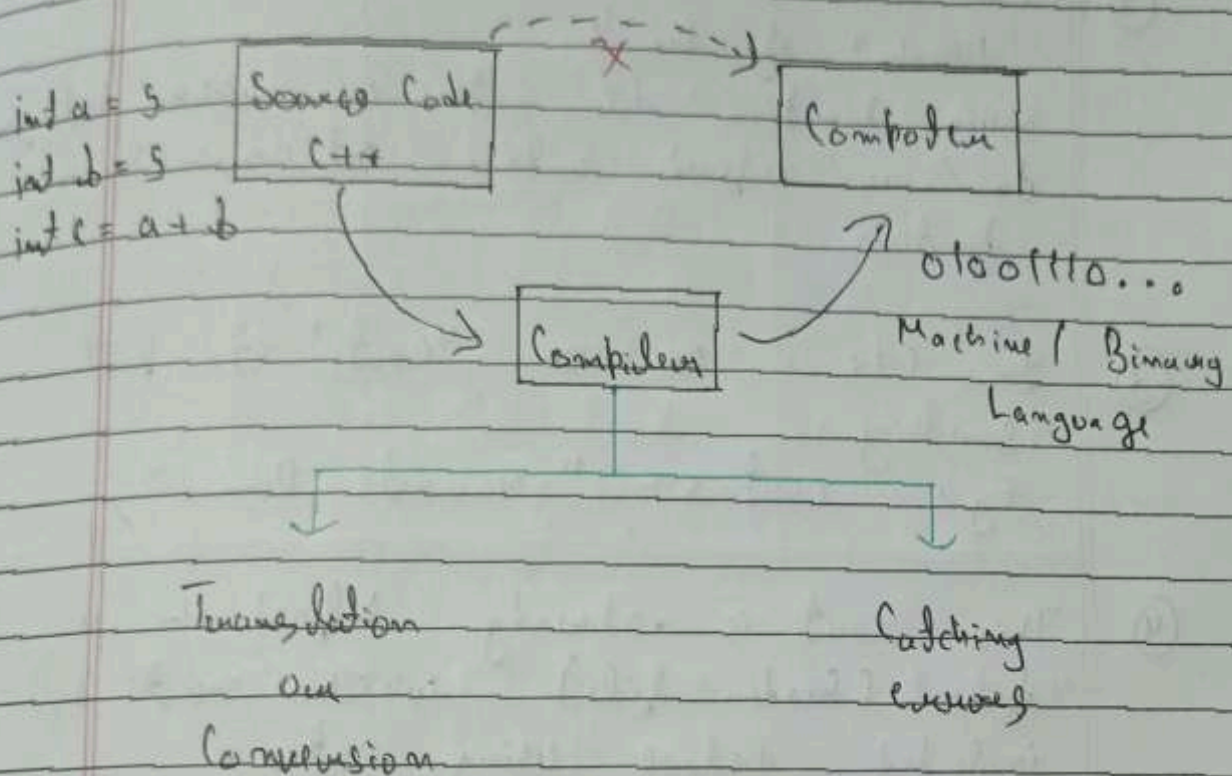 int a = 5
int b = 5
int c = a + b
Source Code
C++
Computer
Compiler
01001110...
Machine / Binary
Language
Translation
or
Conversion
Catching
errors